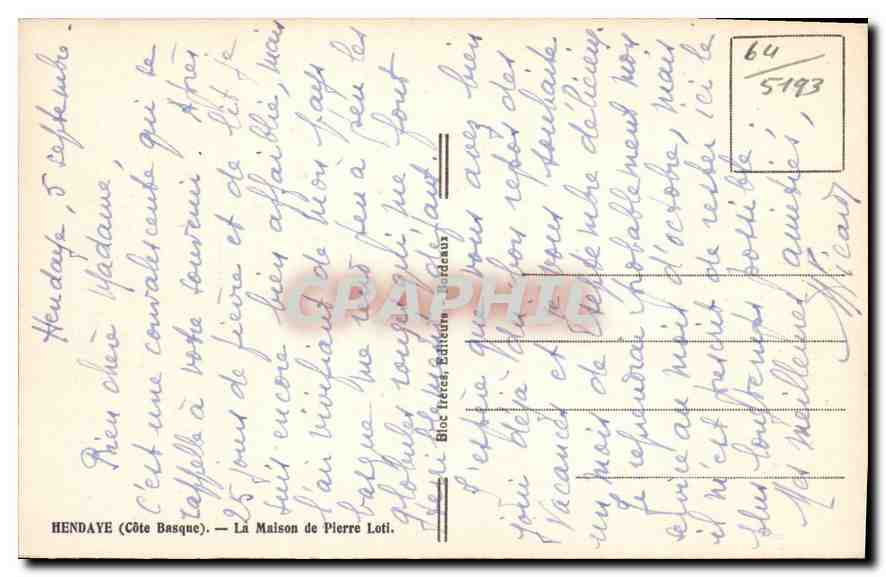 Hendaye, 5 septembre.
Bien chère Madame,
c'est une convalescente qui se
rappelle à votre souvenir. Après
25 jours de fièvre et de lit je
suis encore bien affaiblie, mais
l'air vivifiant de mon pays
basque me rend peu à peu les
globules rouges qui me font
defaut.
J'espère que vous avez bien
joui déjà d'un bon repos des
Vacances et je vous souhaite
un mois de septembre délicieux.
Je reprendrai probablement mon
service au mois d'octobre, mais
il m'est prescrit de rester ici le
plus longtemps possible.
Mes meilleures amitiés,
64/5193
CPAPHIL
Bloc frères, Editeurs Bordeaux
HENDAYE (Côte Basque). — La Maison de Pierre Loti.